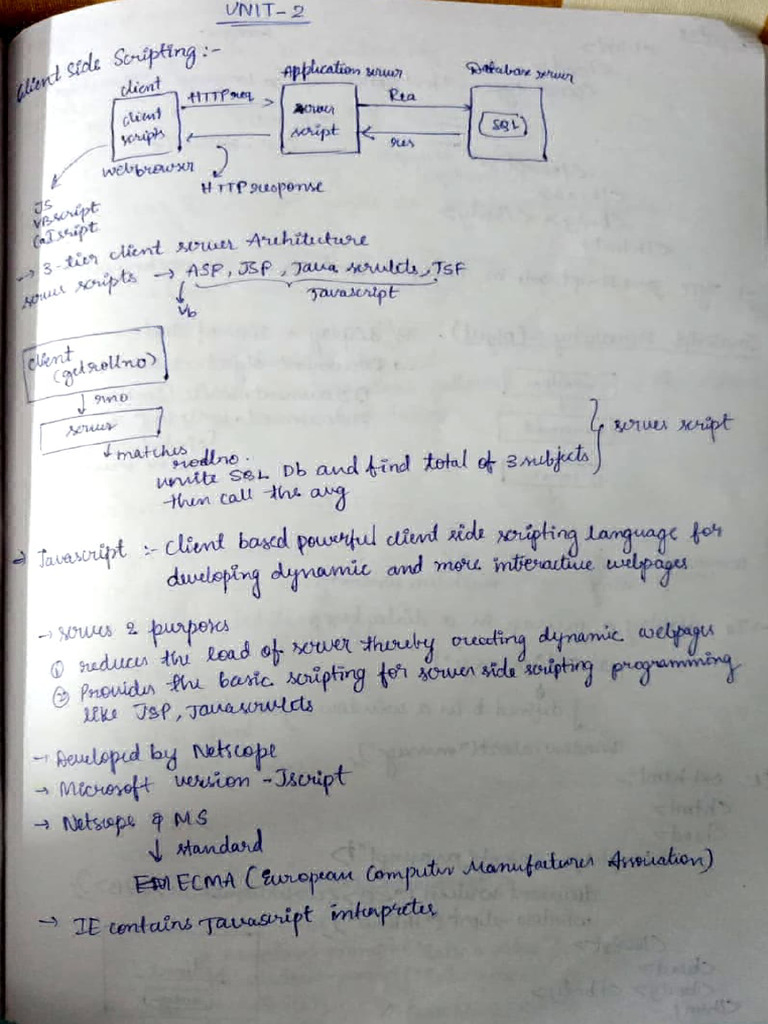 UNIT-2
Client Side Scripting :-
client
Application server
Database server
client scripts
HTTP req
server script
Req
SQL
res
webbrowser
HTTP response
JS
VBscript
→ 3-tier client server Architecture
server scripts → ASP, JSP, Java servlets, JSF
Vb
Javascript
client (getrollno)
rno
server
matches rollno.
write SQL Db and find total of 3 subjects
then call the avg
server script
→ Javascript :- Client based powerful client side scripting language for
developing dynamic and more interactive webpages
→ serves 2 purposes
① reduces the load of server thereby creating dynamic webpages
② Provides the basic scripting for server side scripting programming
like JSP, Javaservlets
→ Developed by Netscope
→ Microsoft version - Jscript
→ Netscope & MS
↓ standard
ECMA (European Computer Manufactures Association)
→ IE contains Javascript interpreter